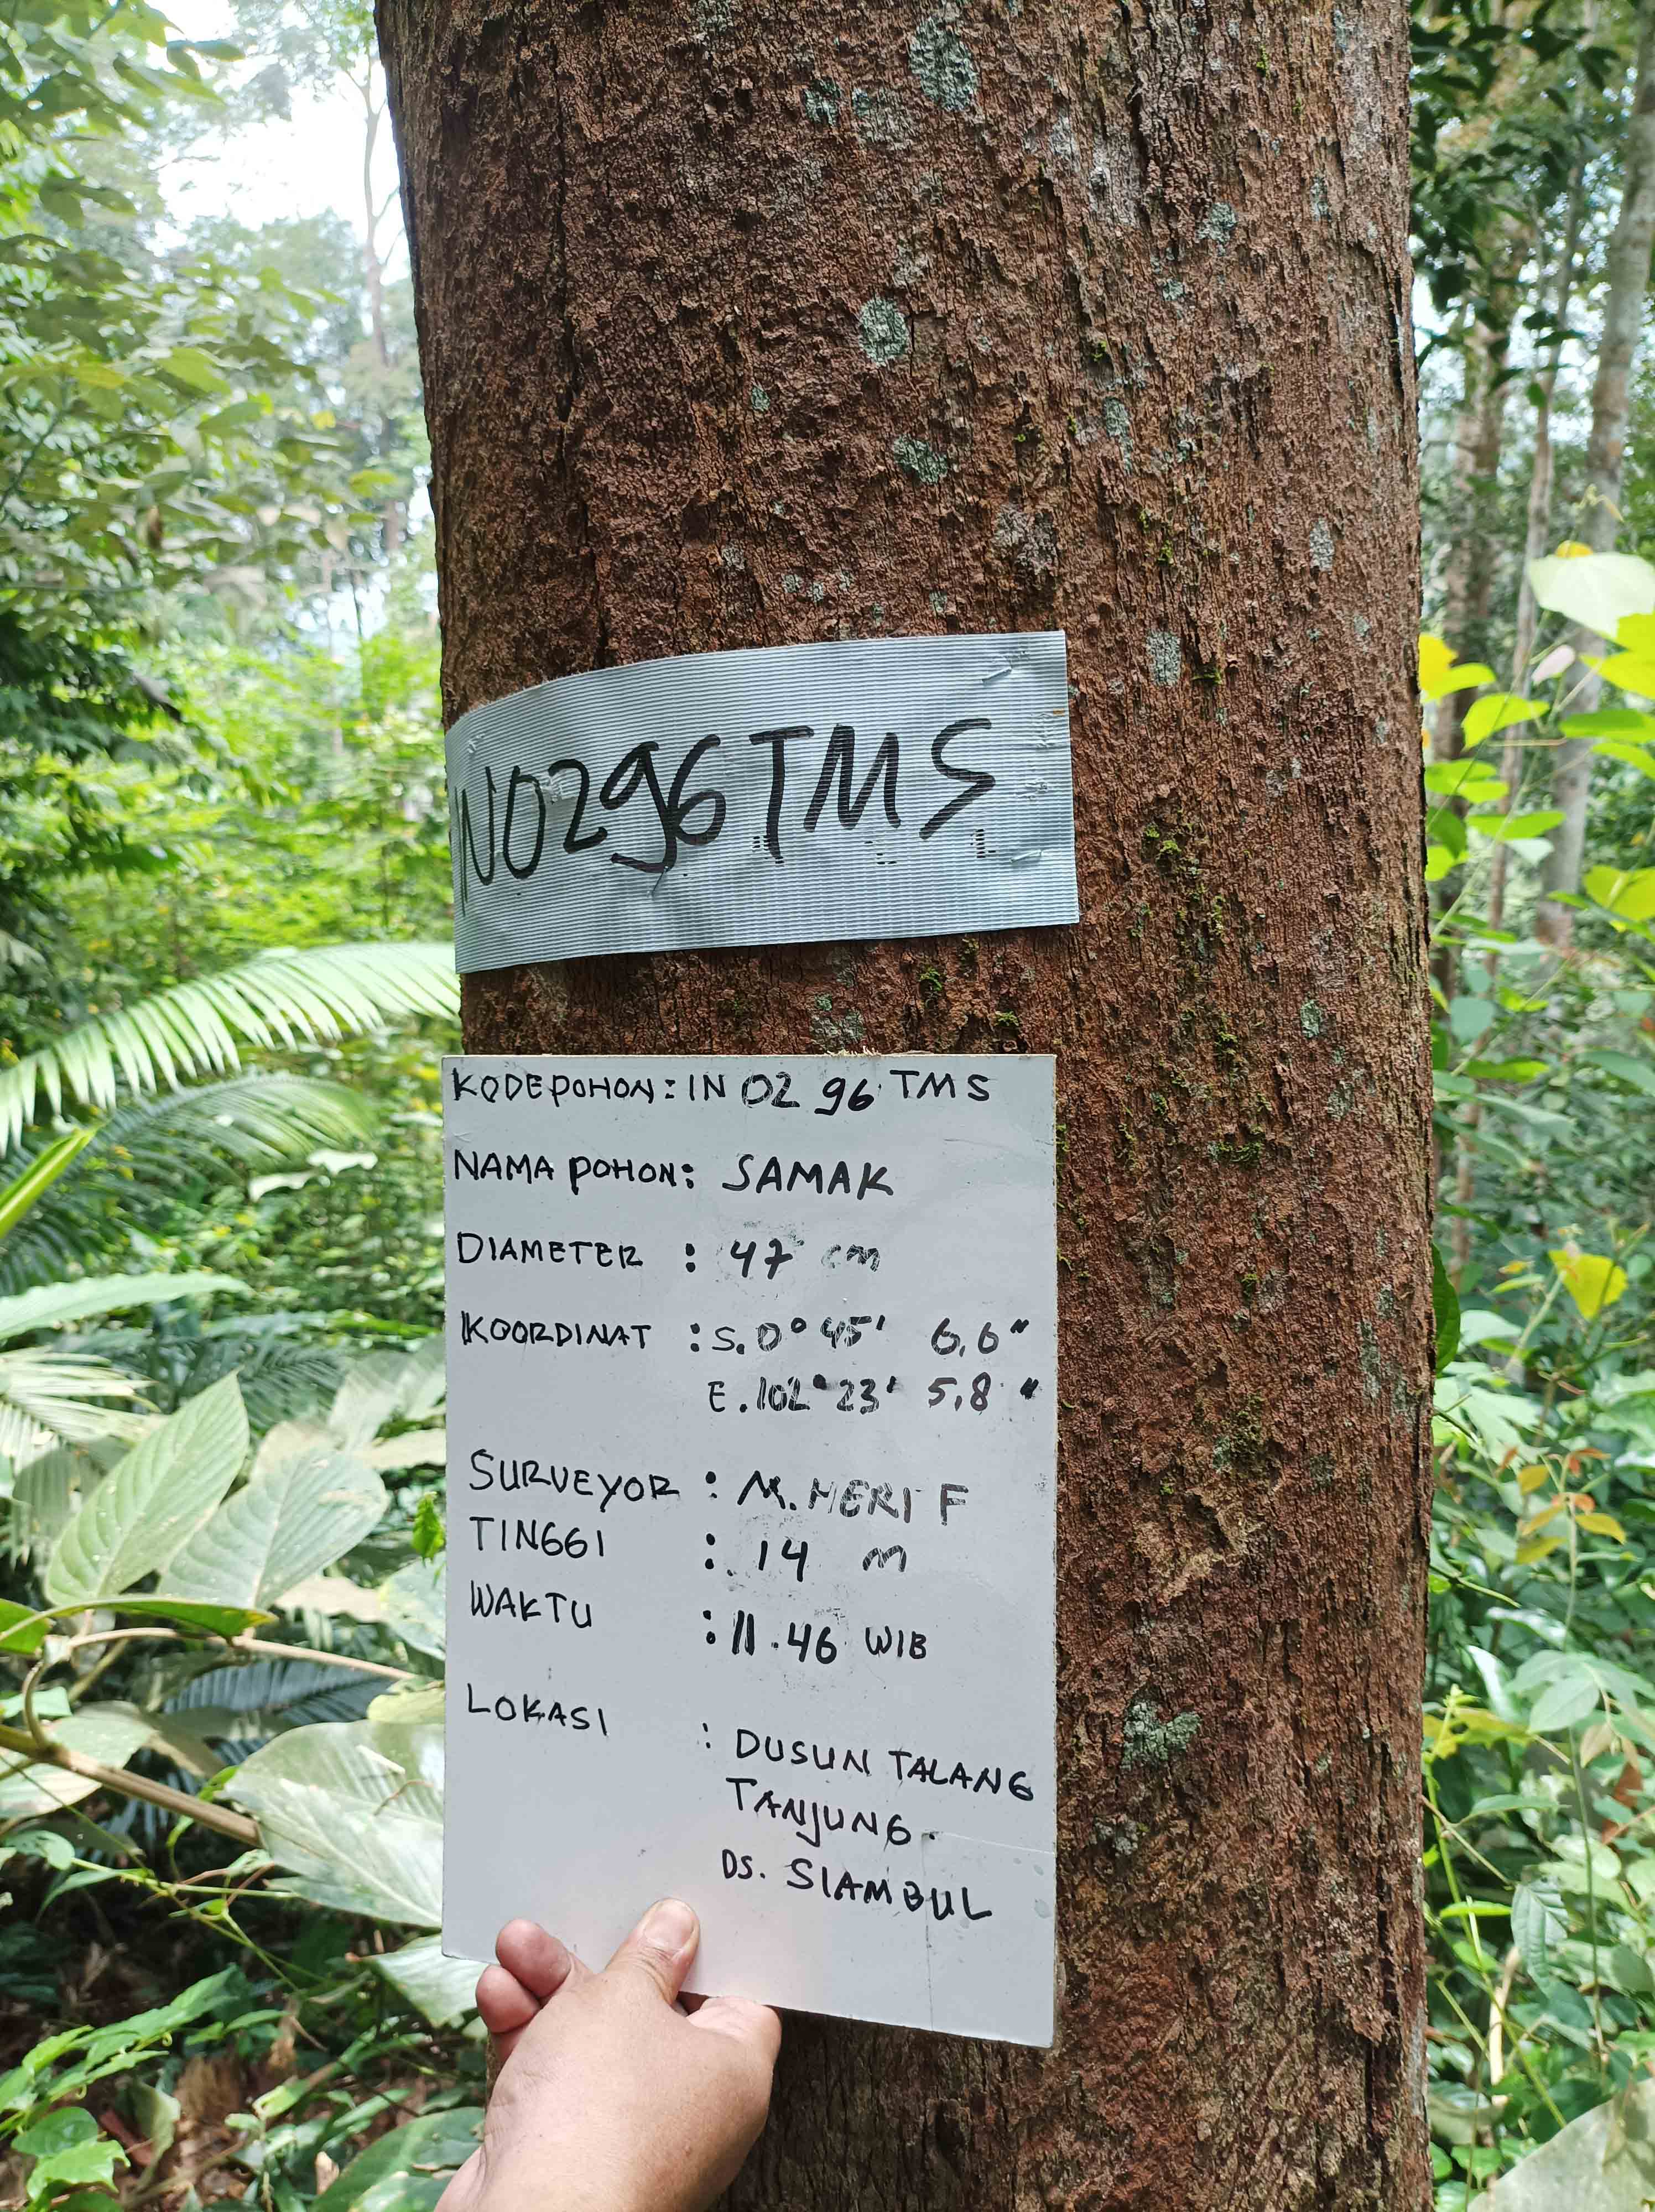 IN0296TMS
KODE POHON : IN 02 96 TMS
NAMA POHON : SAMAK
DIAMETER : 47 cm
KOORDINAT : S. 0° 45' 6,6"
E. 102° 23' 5,8"
SURVEYOR : M. HERI F
TINGGI : 14 m
WAKTU : 11.46 WIB
LOKASI : DUSUN TALANG
TANJUNG
DS. SIAMBUL